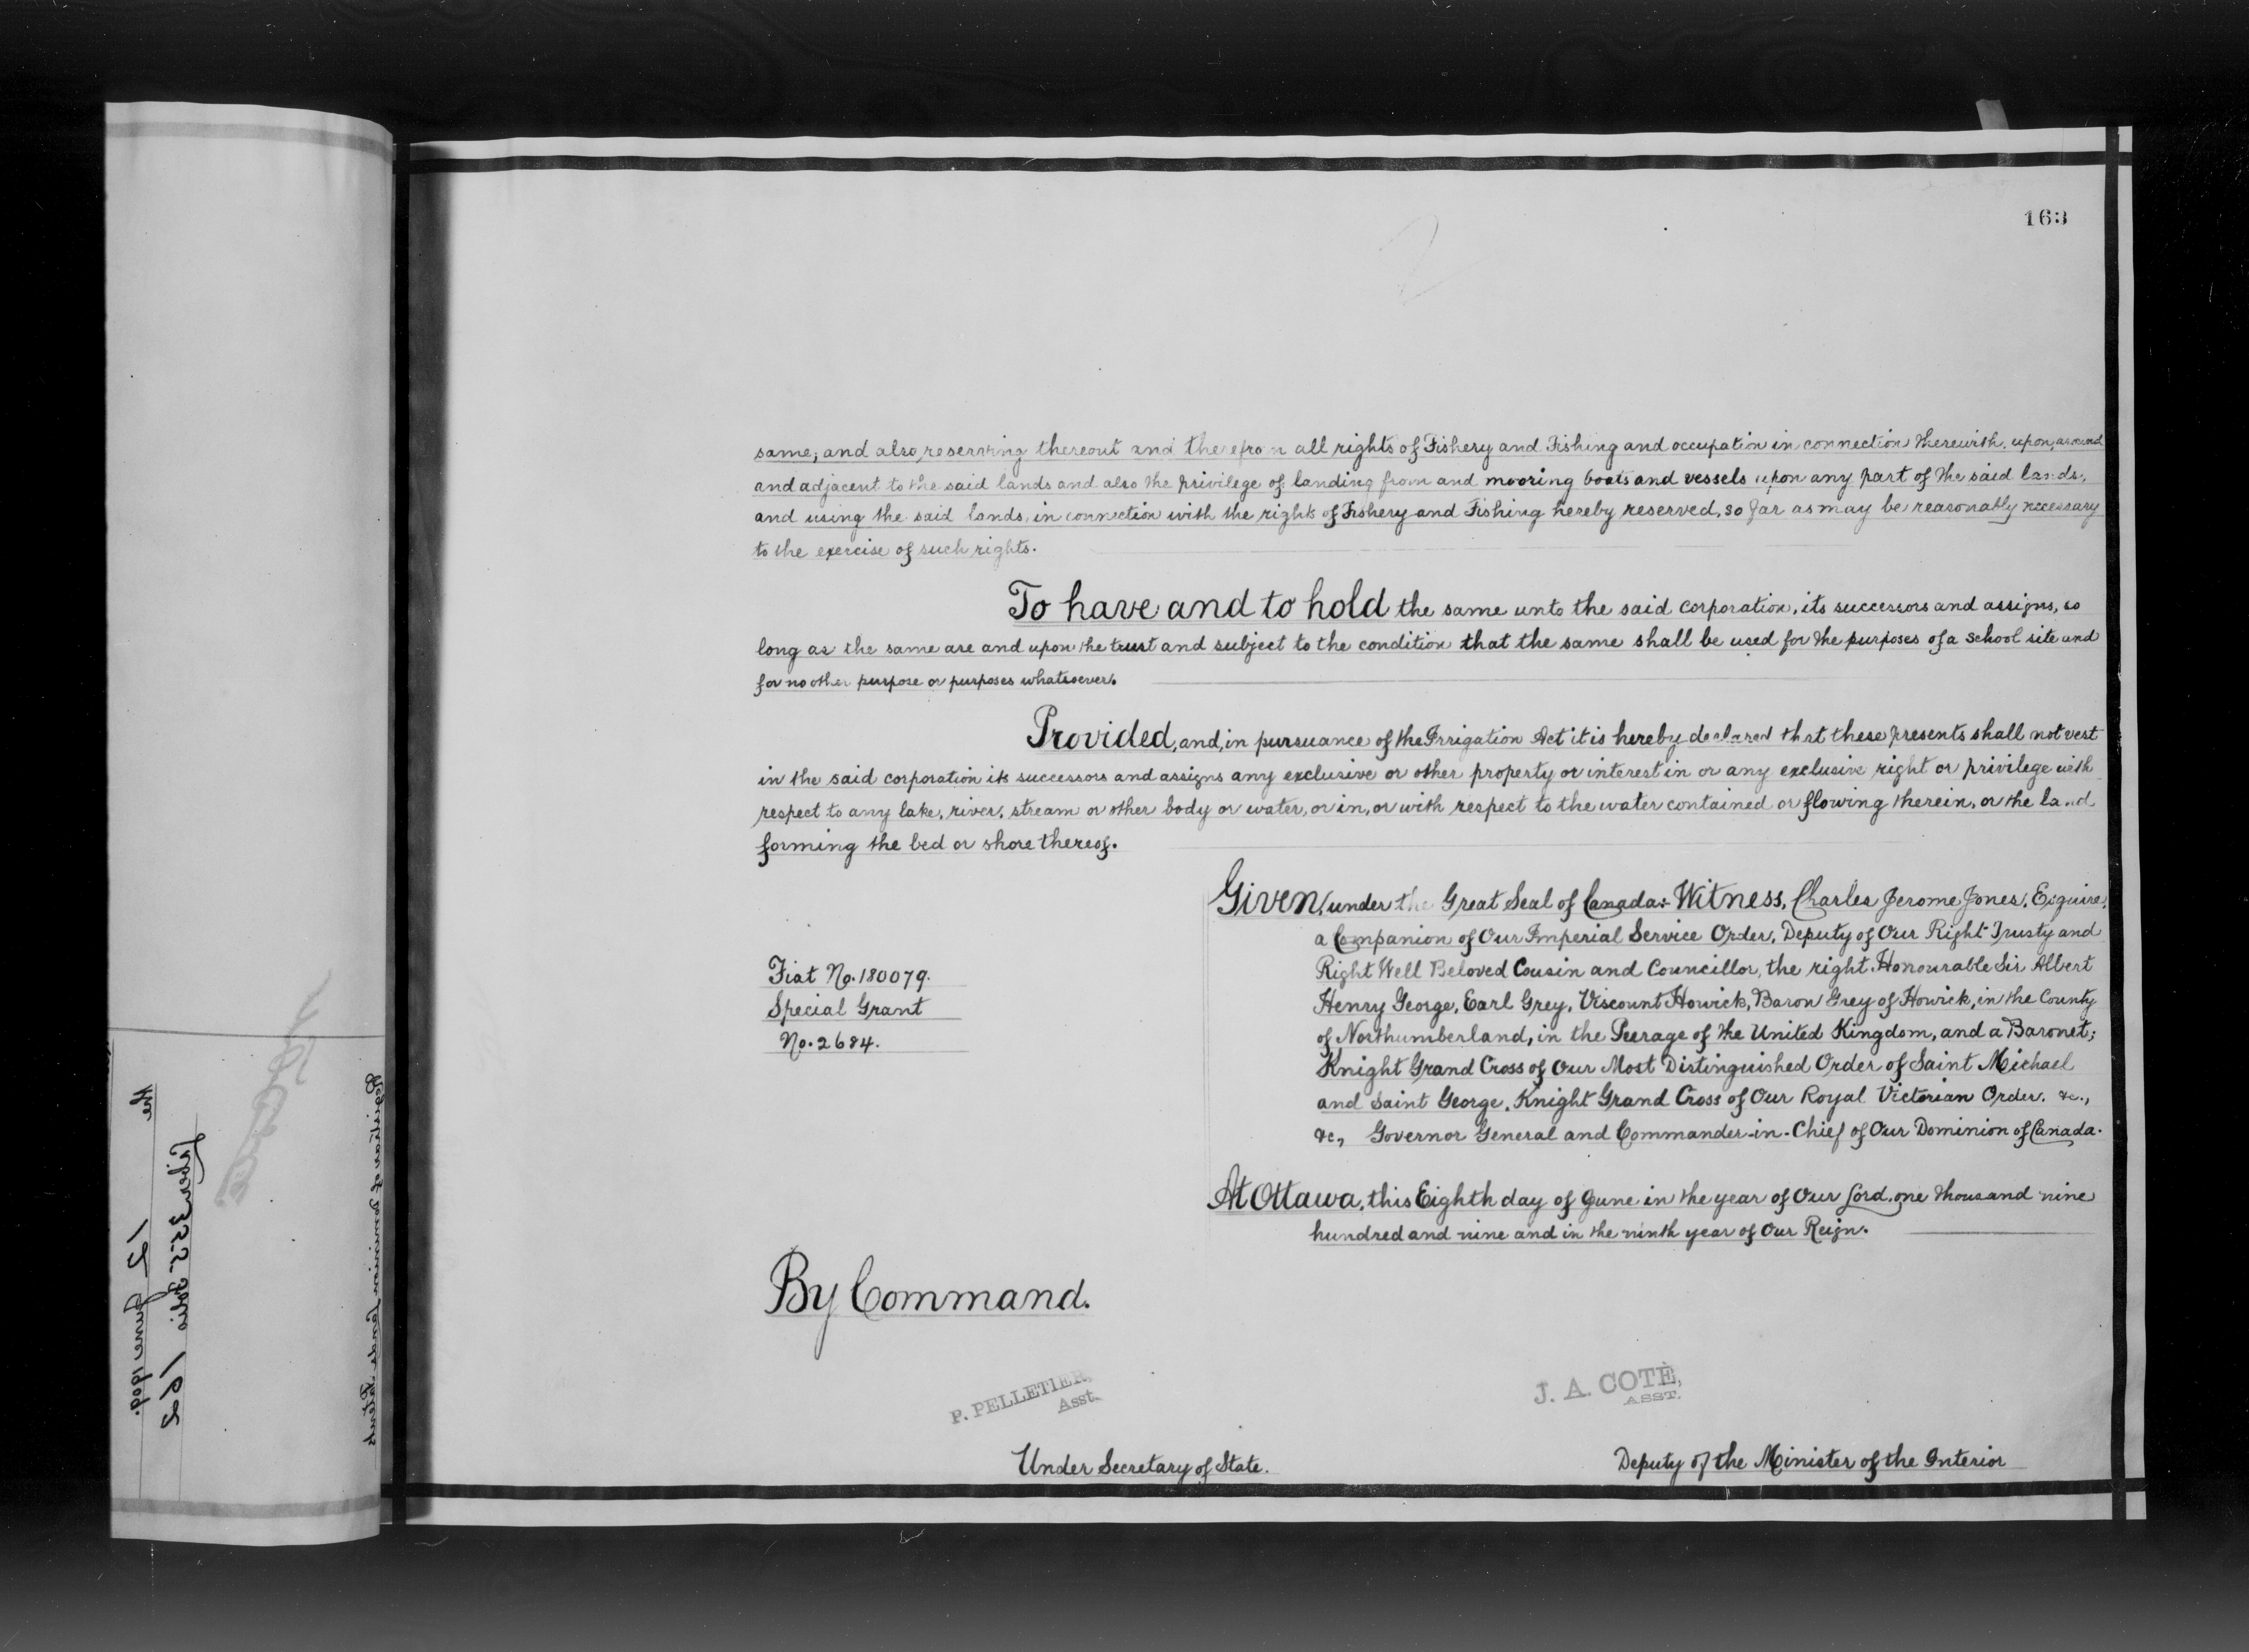 163
same; and also reserving thereout and therefrom all rights of Fishery and Fishing and occupation in connection therewith, upon, around
and adjacent to the said lands and also the privilege of landing from and mooring boats and vessels upon any part of the said lands,
and using the said lands, in connection with the rights of Fishery and Fishing hereby reserved, so far as may be reasonably necessary
to the exercise of such rights.
To have and to hold the same unto the said corporation, its successors and assigns, so
long as the same are and upon the trust and subject to the condition that the same shall be used for the purposes of a school site and
for no other purpose or purposes whatsoever.
Provided, and, in pursuance of the Irrigation Act it is hereby declared that these presents shall not vest
in the said corporation its successors and assigns any exclusive or other property or interest in or any exclusive right or privilege with
respect to any lake, river, stream or other body or water, or in, or with respect to the water contained or flowing therein, or the land
forming the bed or shore thereof.
Given, under the Great Seal of Canada:- Witness, Charles Jerome Jones, Esquire,
a Companion of Our Imperial Service Order, Deputy of Our Right Trusty and
Right Well Beloved Cousin and Councillor, the right Honourable Sir Albert
Henry George, Earl Grey, Viscount Howick, Baron Grey of Howick, in the County
of Northumberland, in the Peerage of the United Kingdom, and a Baronet;
Knight Grand Cross of Our Most Distinguished Order of Saint Michael
and Saint George, Knight Grand Cross of Our Royal Victorian Order, &c.,
&c., Governor General and Commander-in-Chief of Our Dominion of Canada.
At Ottawa, this Eighth day of June in the year of Our Lord, one thousand nine
hundred and nine and in the ninth year of Our Reign.
Fiat No. 180079.
Special Grant
No. 2684.
By Command.
P. PELLETIER,
Asst.
Under Secretary of State.
J. A. COTÉ,
ASST.
Deputy of the Minister of the Interior
Registrar of Dominion Lands Patents
Liber 355 Folio 162
the 12 June 1909.